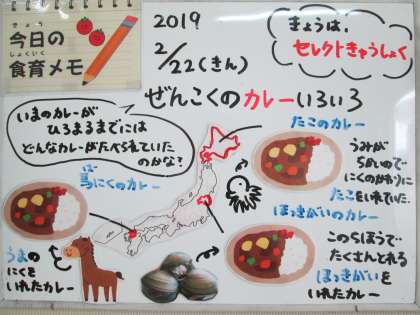 きょう
今日の
しょくいく
食育メモ
2019
2/22(きん)
きょうは、
セレクトきゅうしょく
ぜんこくのカレーいろいろ
いまのカレーが
ひろまるまでには
どんなカレーがたべられていた
のかな?
たこのカレー
うみが
ちかいので
にくのかわりに
たこをいれていた
ば
馬にくのカレー
うまの
にくを
いれたカレー
ほっきがいのカレー
このちほうで
たくさんとれる
ほっきがいを
いれたカレー